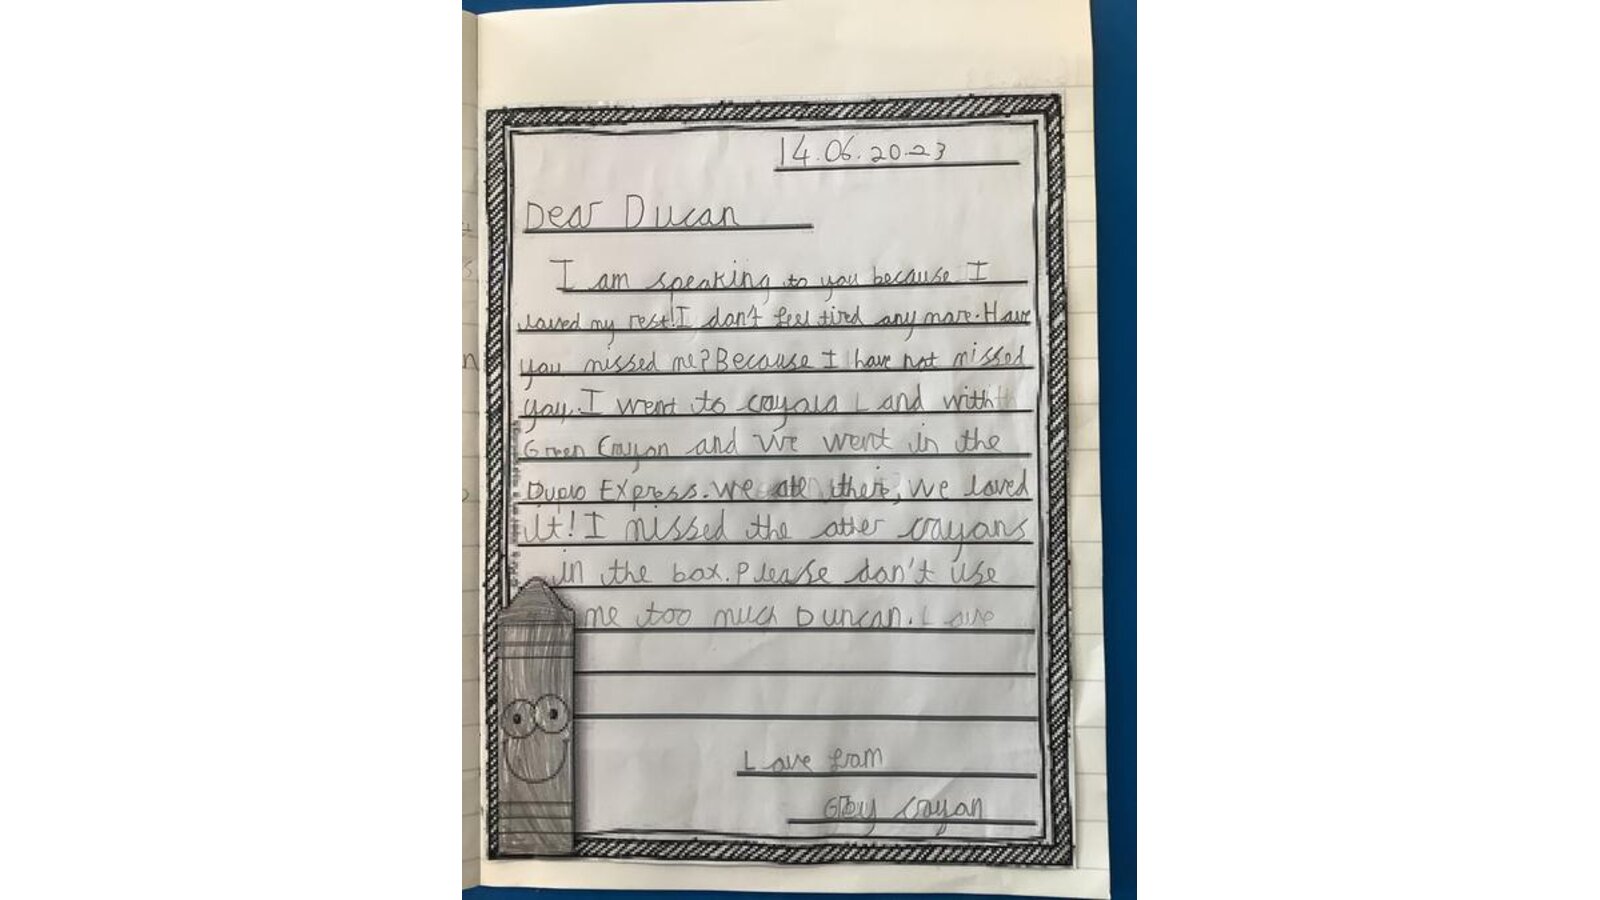 14.06.2023
Dear Ducan
I am speaking to you because I
loved my rest! I don't feel tired any more. Have
you missed me? Because I have not missed
you. I went to crayola Land with
Green Crayon and we went in the
Express. We there, we loved
it! I missed the other crayons
in the box. Please don't use
me too much Duncan. Love
Love from
Grey crayon